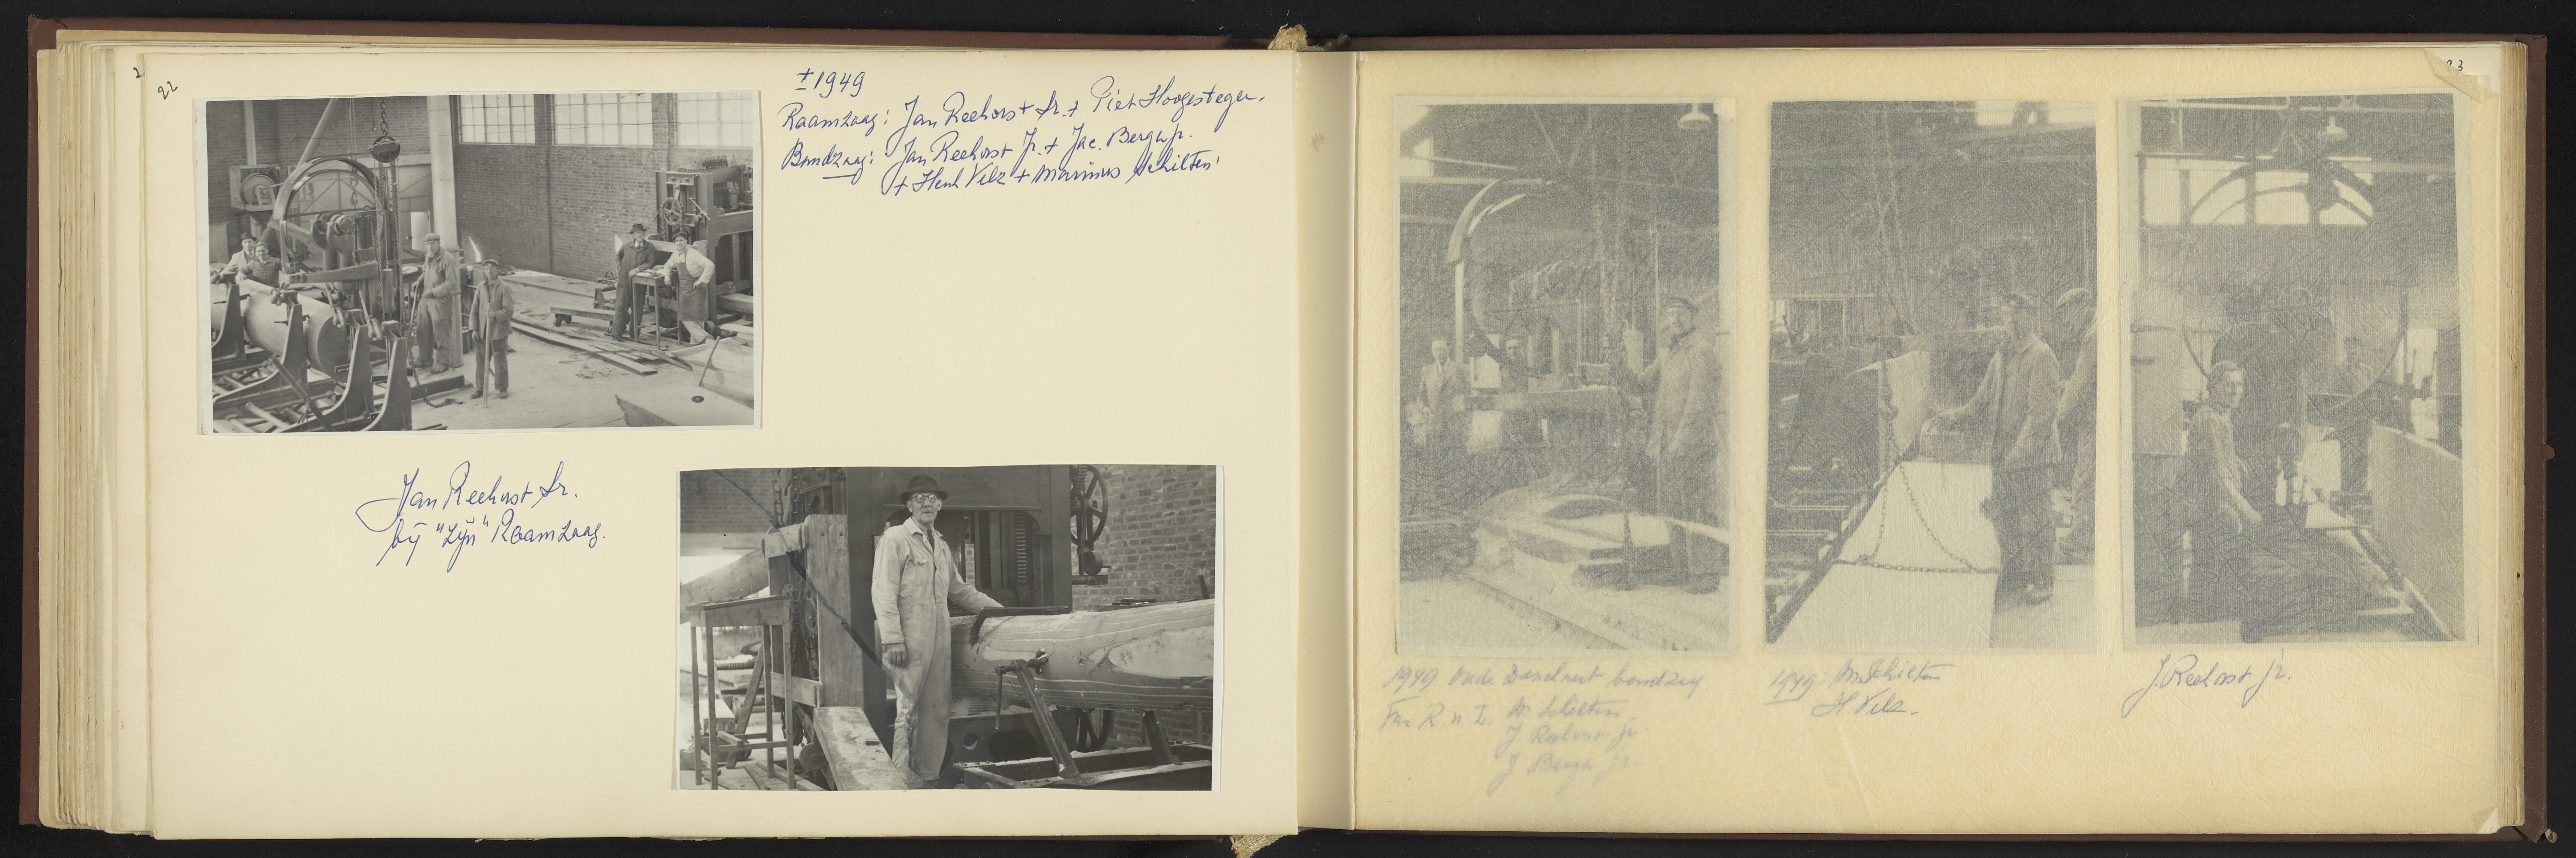 22
± 1949
Raamzaag: Jan Reehorst Sr. + Piet Hoogesteger.
Bandzaag: Jan Reehorst Jr. + Jac. Bergh jr.
+ Henk Velz + Marinus Schilten
Jan Reehorst Sr.
bij "zijn" Raamzaag.
23
1949 Oude bandzaag
Van R. n. L. M Schilten
J Reehorst jr.
J Bergh jr.
1949: M Schilten
H. Velz.
J. Reehorst jr.